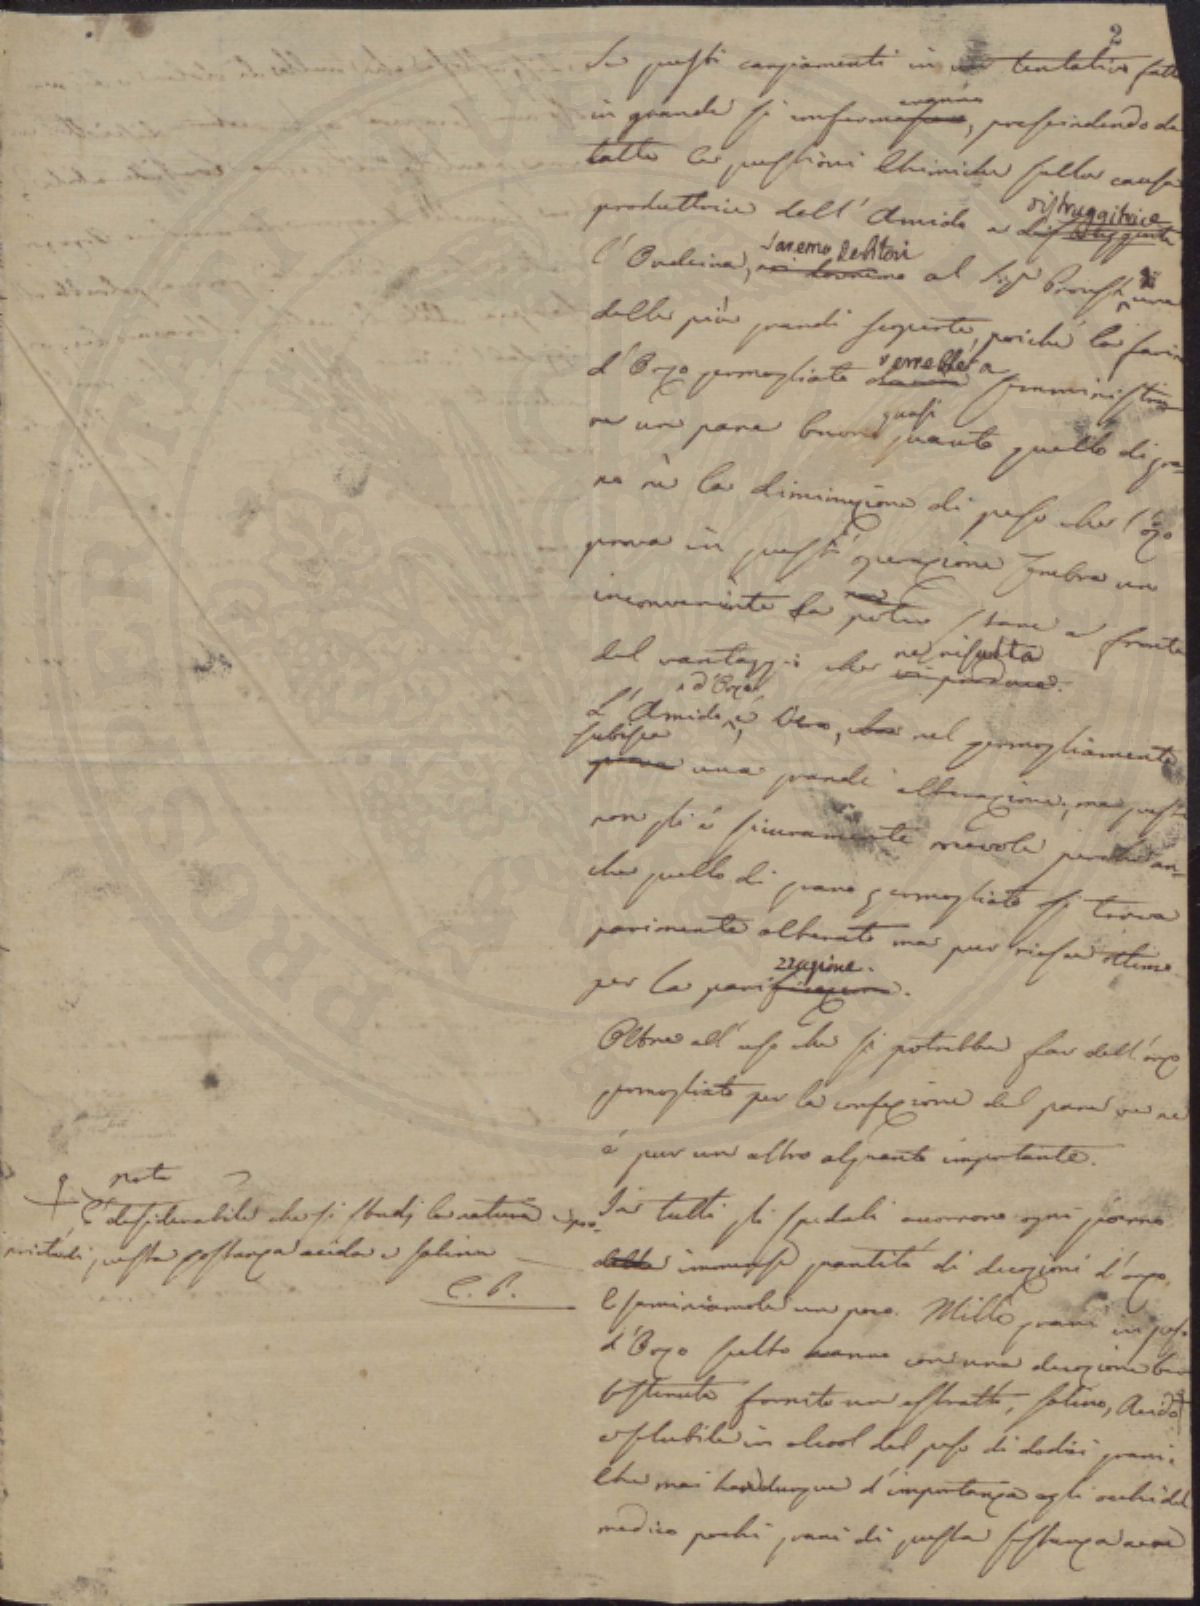 2
Se questi cangiamenti in un tentativo fatto
in grande si confermassero, prescindendo da
tutte le questioni Chimiche sulla causa
produttrice dell'Amido e distruggitrice
l'Ordeina, saremo debitori al Sigr Proust di una
delle più grandi scoperte, poichè la farina
d'Orzo germogliato verrebbe a somministra
re un pane buono quasi quanto quello di gra-
no nè la diminuzione di peso che l'orzo
prova in quest'operazione sembra un
inconveniente da poter stare a fronte
del vantaggio che ne risulta
L'Amido d'Orzo è, vero, nel germogliamento
subisce una grande alterazione, ma questa
non gli è sicuramente nocevole perchè an-
che quello di grano germogliato si trova
parimente alterato ma pur riesce ottimo
per la panizzazione.
Oltre all'uso che si potrebbe far dell'orzo
germogliato per la confezione del pane ve ne
è pur un altro alquanto importante.
In tutti gli spedali occorrono ogni giorno
delle immense quantità di decozioni d'orzo.
Esaminiamole un poco. Mille grani in peso
d'Orzo scelto hanno con una decozione ben
sostenuta fornito un estratto, salino, Acido
e solubile in alcool del peso di dodici grani.
Che mai havvi dunque d'importanza agli occhi del
medico pochi grani di questa sostanza
Nota
È desiderabile che si studj la natura e pro-
prietà di questa sostanza acida e salina
C. P.